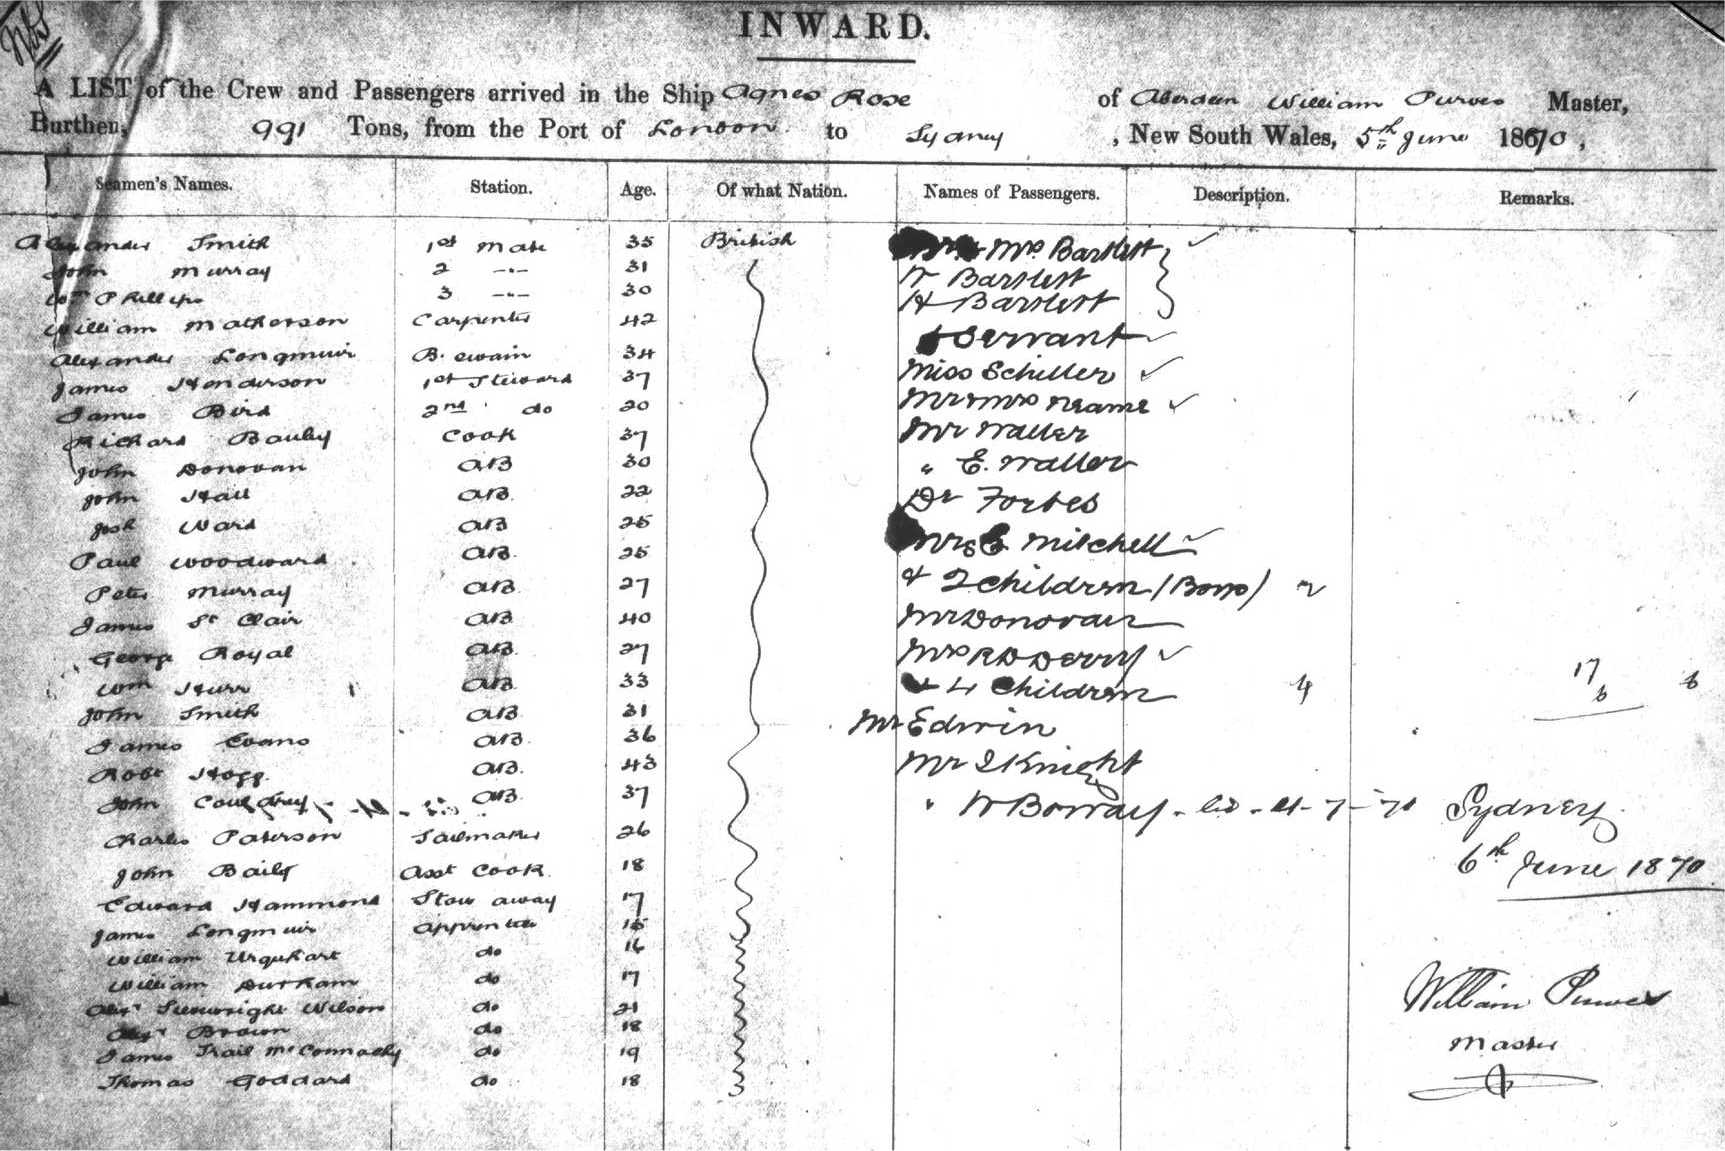 INWARD.
A LIST of the Crew and Passengers arrived in the Ship Agnes Rose of Aberdeen William Purves Master,
Burthen, 991 Tons, from the Port of London to Sydney, New South Wales, 5th June 1870,
Seamen's Names. Station. Age. Of what Nation. Names of Passengers. Description. Remarks.
Alexander Smith 1st Mate 35 British Mrs Bartlett
John Murray 2 -"- 31 W Bartlett
Wm Phillips 3 -"- 30 H Bartlett
William Matherson Carpenter 42 & Servant
Alexander Longmuir B. swain 34
James Henderson 1st Steward 37 Miss Schiller
James Bird 2nd do 20 Mr & Mrs Neame
Richard Bauly Cook 37 Mr Waller
John Donovan AB 30 " E. Waller
John Hall AB 22 Dr Forbes
Josh Ward AB 25 Mrs E Mitchell
Paul Woodward AB 25
Peter Murray AB 27 & 2 Children (Boys) 2
James St Clair AB 40 Mr Donovan
George Royal AB 27 Mrs R D Derry
Wm Hurr AB 33 & 4 Children 4 17 6 6
John Smith AB 31 Mr Edwin
James Evans AB 36
Robt Hogg AB 43 Mr I Knight
John AB 37 " W - 21-7-71 Sydney
Charles Paterson Sailmaker 26
John Baily Asst Cook 18 6th June 1870
Edward Hammond Stow away 17
James Longmuir Apprentice 15
William Urquhart do 16
William Durham do 17 William Purves
Alexr Wilson do 21
Alexr Brown do 18 Master
James Trail McConnachy do 19
Thomas Goddard do 18